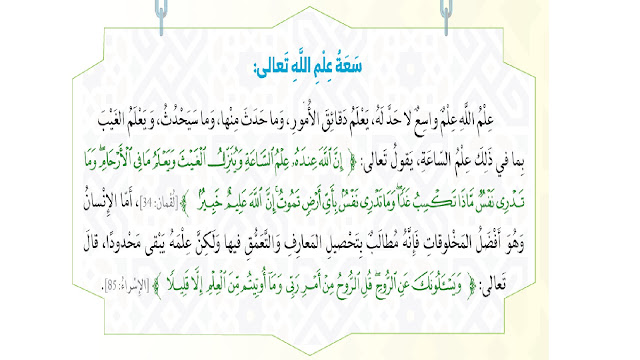 سَعَةُ عِلْمِ اللَّهِ تَعالى:
عِلْمُ اللَّهِ عِلْمٌ واسِعٌ لا حَدَّ لَهُ، يَعْلَمُ دَقائِقَ الأُمورِ، وَما حَدَثَ مِنْها، وَما سَيَحْدُثُ، وَيَعْلَمُ الغَيْبَ
بِما في ذَلِكَ عِلْمُ السّاعَةِ، يَقولُ تَعالى: ﴿ إِنَّ ٱللَّهَ عِندَهُۥ عِلْمُ ٱلسَّاعَةِ وَيُنَزِّلُ ٱلْغَيْثَ وَيَعْلَمُ مَا فِى ٱلْأَرْحَامِ ۖ وَمَا
تَدْرِى نَفْسٌ مَّاذَا تَكْسِبُ غَدًا ۖ وَمَا تَدْرِى نَفْسٌۢ بِأَىِّ أَرْضٍ تَمُوتُ ۚ إِنَّ ٱللَّهَ عَلِيمٌ خَبِيرٌۢ ﴾ [لُقْمان: 34]، أَمّا الإِنْسانُ
وَهُوَ أَفْضَلُ المَخْلوقاتِ فَإِنَّهُ مُطالَبٌ بِتَحْصيلِ المَعارِفِ وَالتَّعَمُّقِ فيها وَلَكِنَّ عِلْمَهُ يَبْقى مَحْدودًا، قالَ
تَعالى: ﴿ وَيَسْـَٔلُونَكَ عَنِ ٱلرُّوحِ ۖ قُلِ ٱلرُّوحُ مِنْ أَمْرِ رَبِّى وَمَآ أُوتِيتُم مِّنَ ٱلْعِلْمِ إِلَّا قَلِيلًا ﴾ [الإِسْراء: 85].